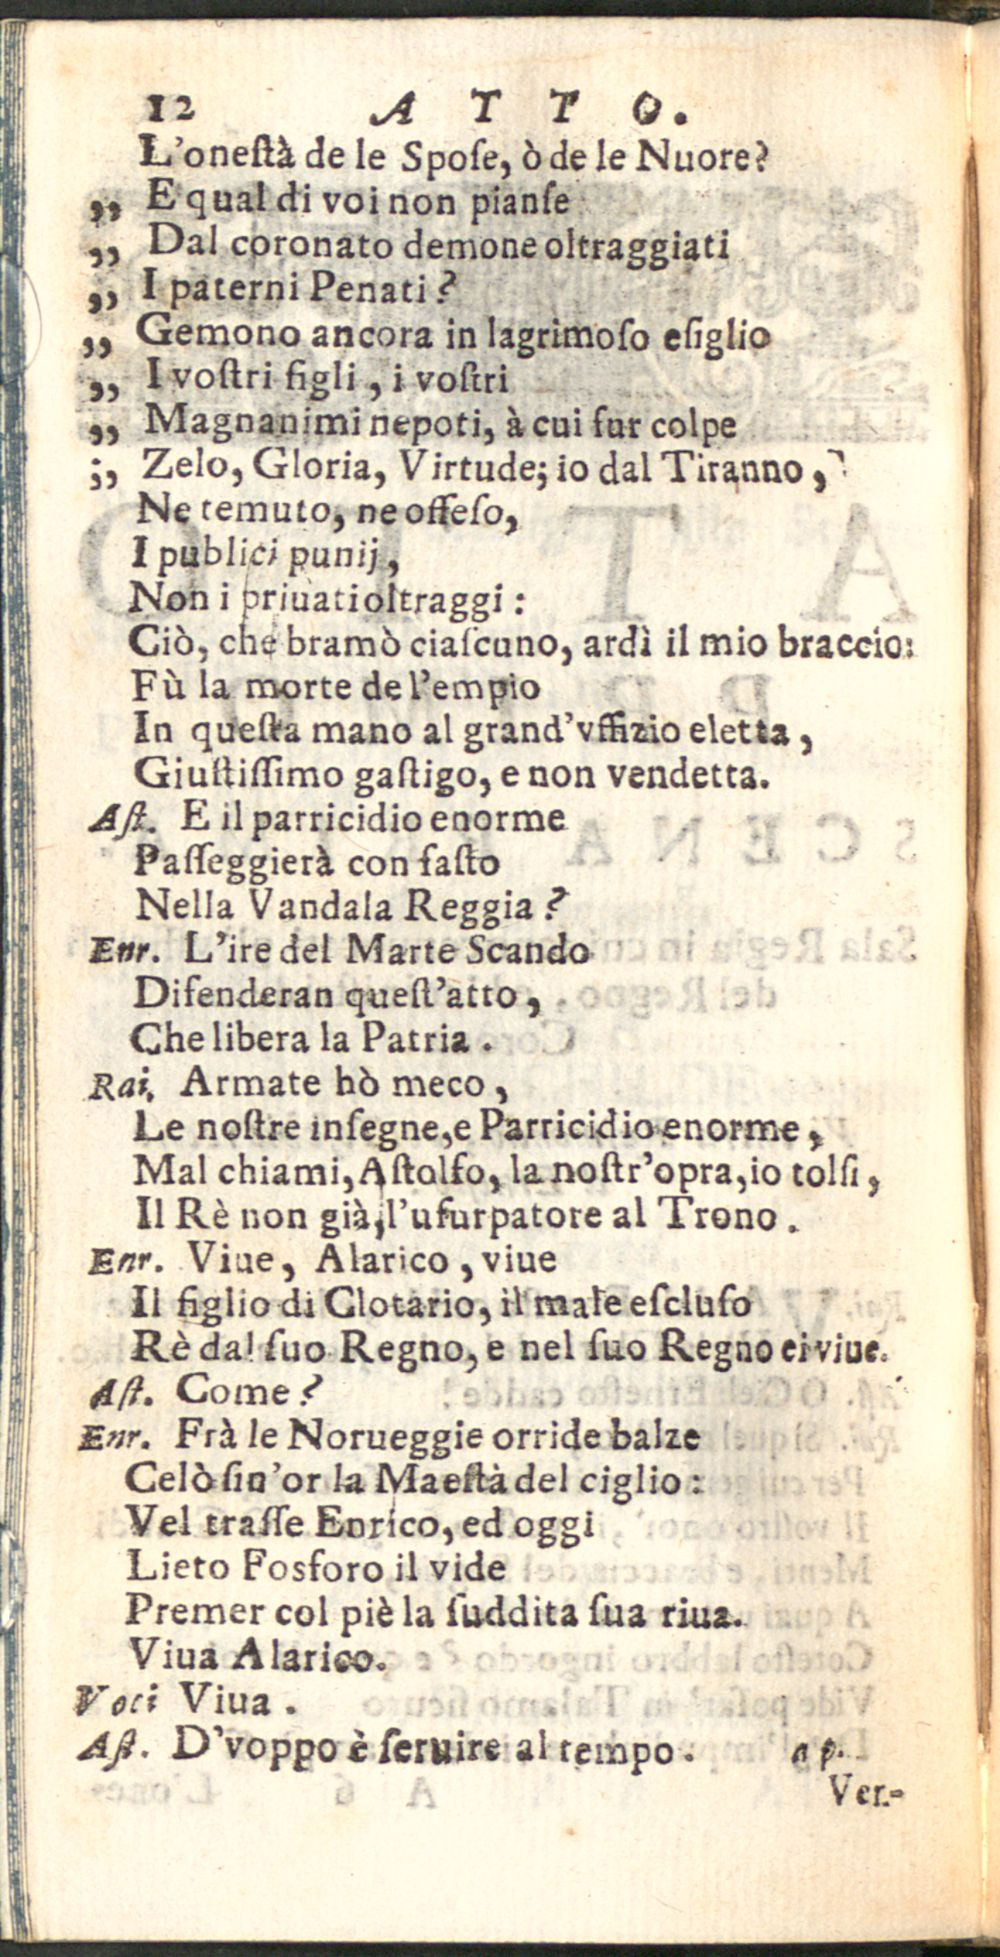 12 ATTO.
L'oneſtà de le Spoſe, ò de le Nuore?
„ E qual di voi non pianſe
„ Dal coronato demone oltraggiati
„ I paterni Penati?
„ Gemono ancora in lagrimoſo eſiglio
„ I voſtri figli, i voſtri
„ Magnanimi nepoti, à cui fur colpe
;, Zelo, Gloria, Virtude; io dal Tiranno,
Ne temuto, ne offeſo,
I publici punij,
Non i priuati oltraggi:
Ciò, che bramò ciaſcuno, ardì il mio braccio:
Fù la morte de l'empio
In queſta mano al grand'vffizio eletta,
Giuſtiſſimo gaſtigo, e non vendetta.
Aſt. E il parricidio enorme
Paſſeggierà con faſto
Nella Vandala Reggia?
Enr. L'ire del Marte Scando
Difenderan queſt'atto,
Che libera la Patria.
Rai. Armate hò meco,
Le noſtre inſegne, e Parricidio enorme,
Mal chiami, Aſtolfo, la noſtr'opra, io tolſi,
Il Rè non già, l'uſurpatore al Trono.
Enr. Viue, Alarico, viue
Il figlio di Clotario, il male eſcluſo
Rè dal ſuo Regno, e nel ſuo Regno ei viue.
Aſt. Come?
Enr. Frà le Norueggie orride balze
Celò ſin'or la Maeſtà del ciglio:
Vel traſſe Enrico, ed oggi
Lieto Fosforo il vide
Premer col piè la ſuddita ſua riua.
Viua Alarico.
Voci Viua.
Aſt. D'voppo è ſeruire al tempo. a p.
Ver-